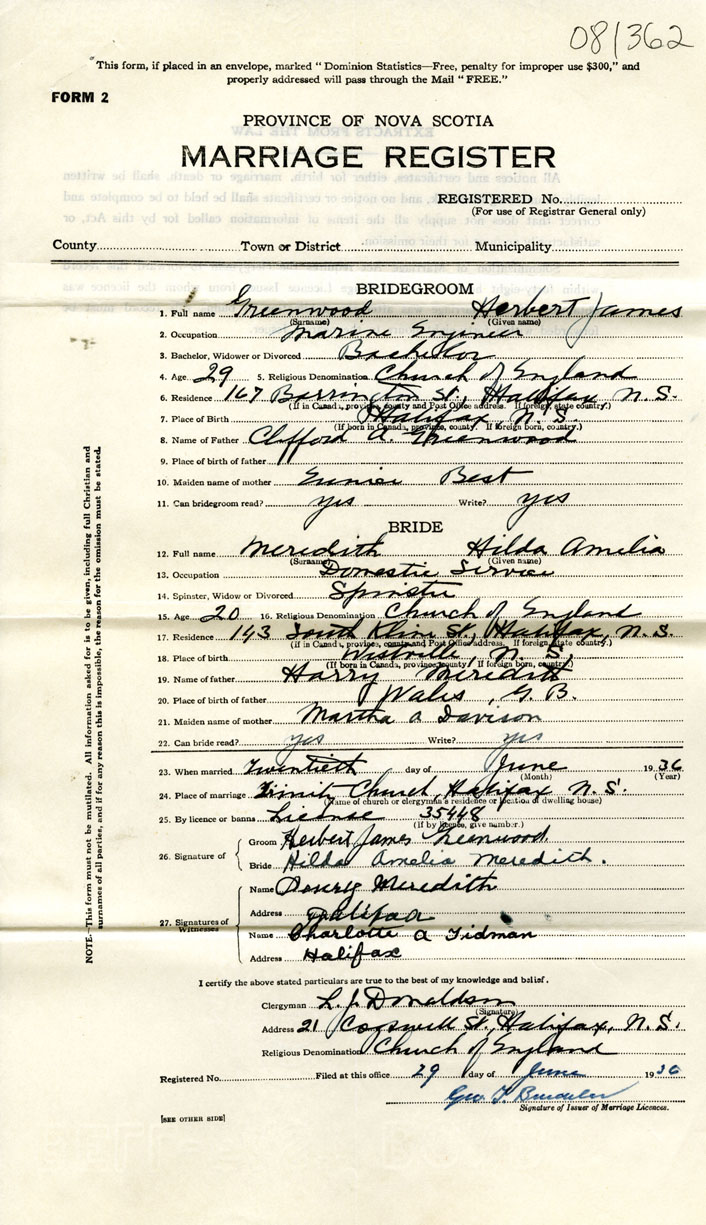 081362
"This form, if placed in an envelope, marked "Dominion Statistics—Free, penalty for improper use $300," and
properly addressed will pass through the Mail "FREE."
FORM 2
PROVINCE OF NOVA SCOTIA
MARRIAGE REGISTER
REGISTERED No.
(For use of Registrar General only)
County Town or District Municipality
BRIDEGROOM
1. Full name Greenwood Herbert James
(Surname) (Given name)
2. Occupation Marine Engineer
3. Bachelor, Widower or Divorced Bachelor
4. Age 29 5. Religious Denomination Church of England
6. Residence 167 Barrington St., Halifax N.S.
(If in Canada, province, county and Post Office address. If foreign, state country.)
7. Place of Birth Halifax N.S.
(If born in Canada, province, county. If foreign born, country.)
8. Name of Father Clifford A. Greenwood
9. Place of birth of father
10. Maiden name of mother Eunice Best
11. Can bridegroom read? yes Write? yes
BRIDE
12. Full name Meredith Hilda Amelia
(Surname) (Given name)
13. Occupation Domestic Service
14. Spinster, Widow or Divorced Spinster
15. Age 20 16. Religious Denomination Church of England
17. Residence 143 South Kline St., Halifax, N.S.
(If in Canada, province, county and Post Office address. If foreign state country.)
18. Place of birth Westville, N.S.
(If born in Canada, province county. If foreign born, country)
19. Name of father Harry Meredith
20. Place of birth of father Wales, G.B.
21. Maiden name of mother Martha A Davison
22. Can bride read? yes Write? yes
23. When married Twentieth day of June 1936
(Month) (Year)
24. Place of marriage Trinity Church, Halifax N.S.
(Name of church or clergyman's residence or location of dwelling house)
25. By licence or banns License 35448
(If by licence, give number.)
26. Signature of Groom Herbert James Greenwood
Bride Hilda Amelia Meredith.
27. Signatures of Witnesses
Name Meredith
Address Halifax
Name Charlotte A Tidman
Address Halifax
I certify the above stated particulars are true to the best of my knowledge and belief.
Clergyman L. J. Donaldson
(Signature)
Address 21 Cogswell St., Halifax, N.S.
Religious Denomination Church of England
Registered No. Filed at this office 29 day of June 1936
Geo. T.
Signature of Issuer of Marriage Licences.
[SEE OTHER SIDE]
NOTE.—This form must not be mutilated. All information asked for is to be given, including full Christian and
surnames of all parties, and if for any reason this is impossible, the reason for the omission must be stated.